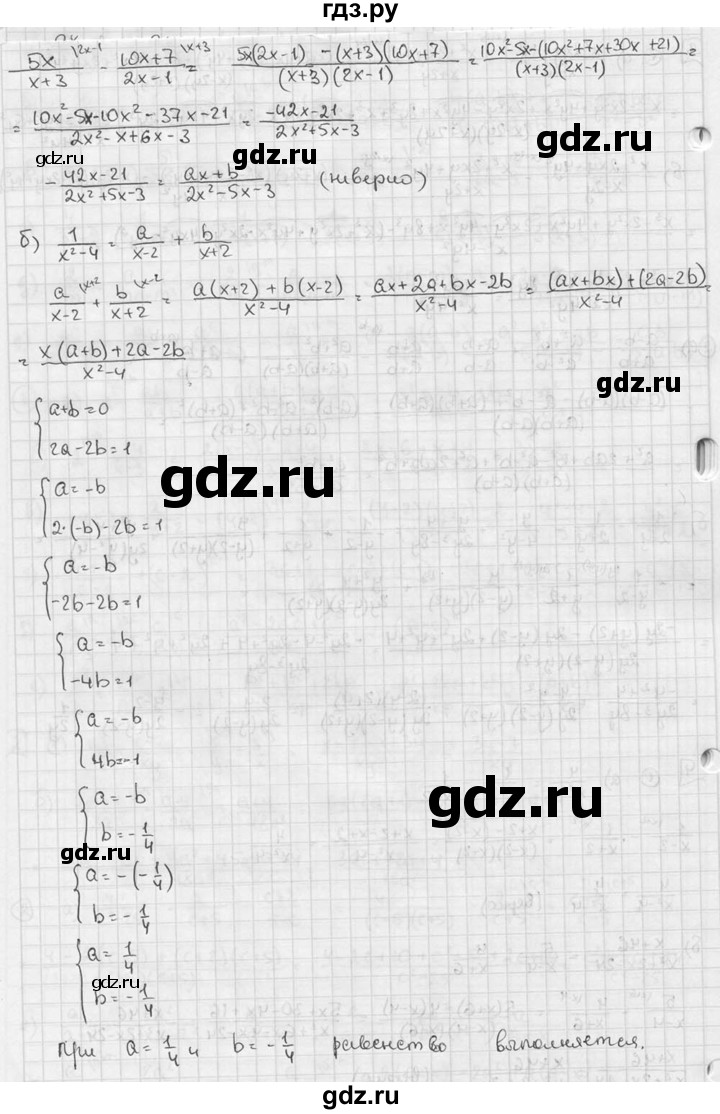 гдз.ру
5x/(x+3) |2x-1 - (10x+7)/(2x-1) |x+3 = (5x(2x-1) - (x+3)(10x+7))/((x+3)(2x-1)) = (10x²-5x-(10x²+7x+30x+21))/((x+3)(2x-1)) =
= (10x²-5x-10x²-37x-21)/(2x²-x+6x-3) = (-42x-21)/(2x²+5x-3)
gdz.ru gdz.ru
-(42x-21)/(2x²+5x-3) = (ax+b)/(2x²-5x-3) (неверно)
gdz.ru
б) 1/(x²-4) = a/(x-2) + b/(x+2)
a/(x-2) \x+2 + b/(x+2) \x-2 = (a(x+2)+b(x-2))/(x²-4) = (ax+2a+bx-2b)/(x²-4) = ((ax+bx)+(2a-2b))/(x²-4) =
= (x(a+b)+2a-2b)/(x²-4)
gdz.ru
{ a+b=0
2a-2b=1
gdz.ru
{ a=-b
2·(-b)-2b=1
{ a=-b
-2b-2b=1
{ a=-b
-4b=1
{ a=-b
4b=-1
gdz.ru
{ a=-b
b=-1/4
gdz.ru
{ a=-(-1/4)
b=-1/4
{ a=1/4
gdz.ru
b=-1/4
При a=1/4 и b=-1/4 равенство выполняется.
gdz.ru gdz.ru